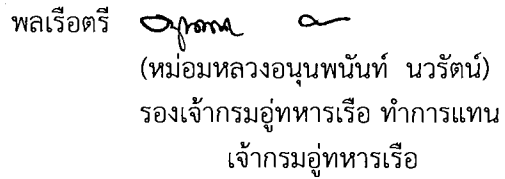 พลเรือตรี
(หม่อมหลวงอนุนพนันท์ นวรัตน์)
รองเจ้ากรมอู่ทหารเรือ ทำการแทน
เจ้ากรมอู่ทหารเรือ